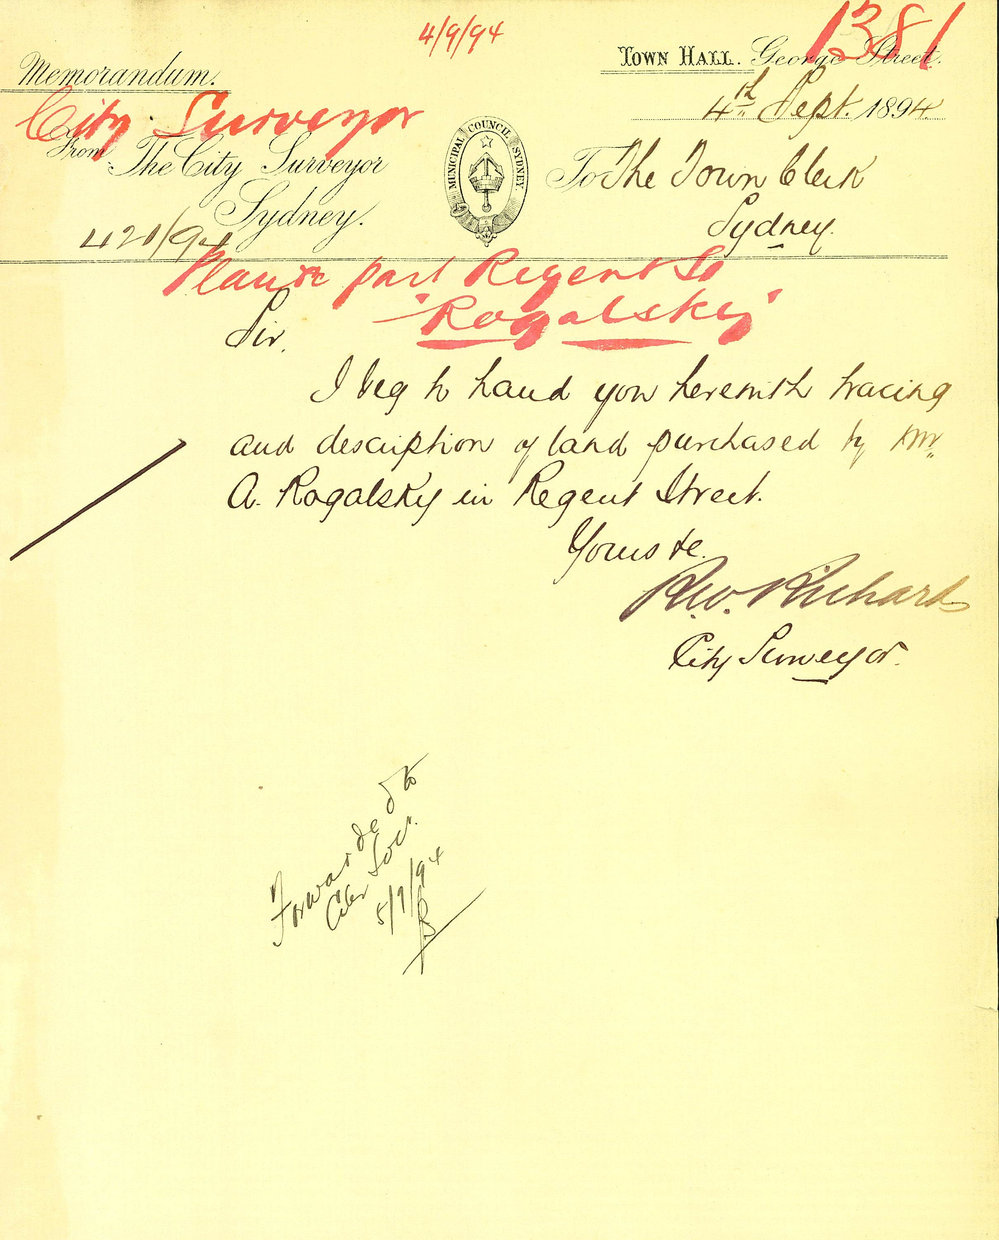 4/9/94
1381
Memorandum.
TOWN HALL. George Street.
4th Sept. 1894
City Surveyor
From The City Surveyor
Sydney.
MUNICIPAL COUNCIL SYDNEY.
To The Town Clerk
Sydney.
421/94
Plan &c part Regent St
"Rogalsky"
Sir,
I beg to hand you herewith tracing
and description of land purchased by Mr.
A. Rogalsky in Regent Street.
Yours &c.
R.W. Richards
City Surveyor.
Forwarded to
City Sol.
5/9/94